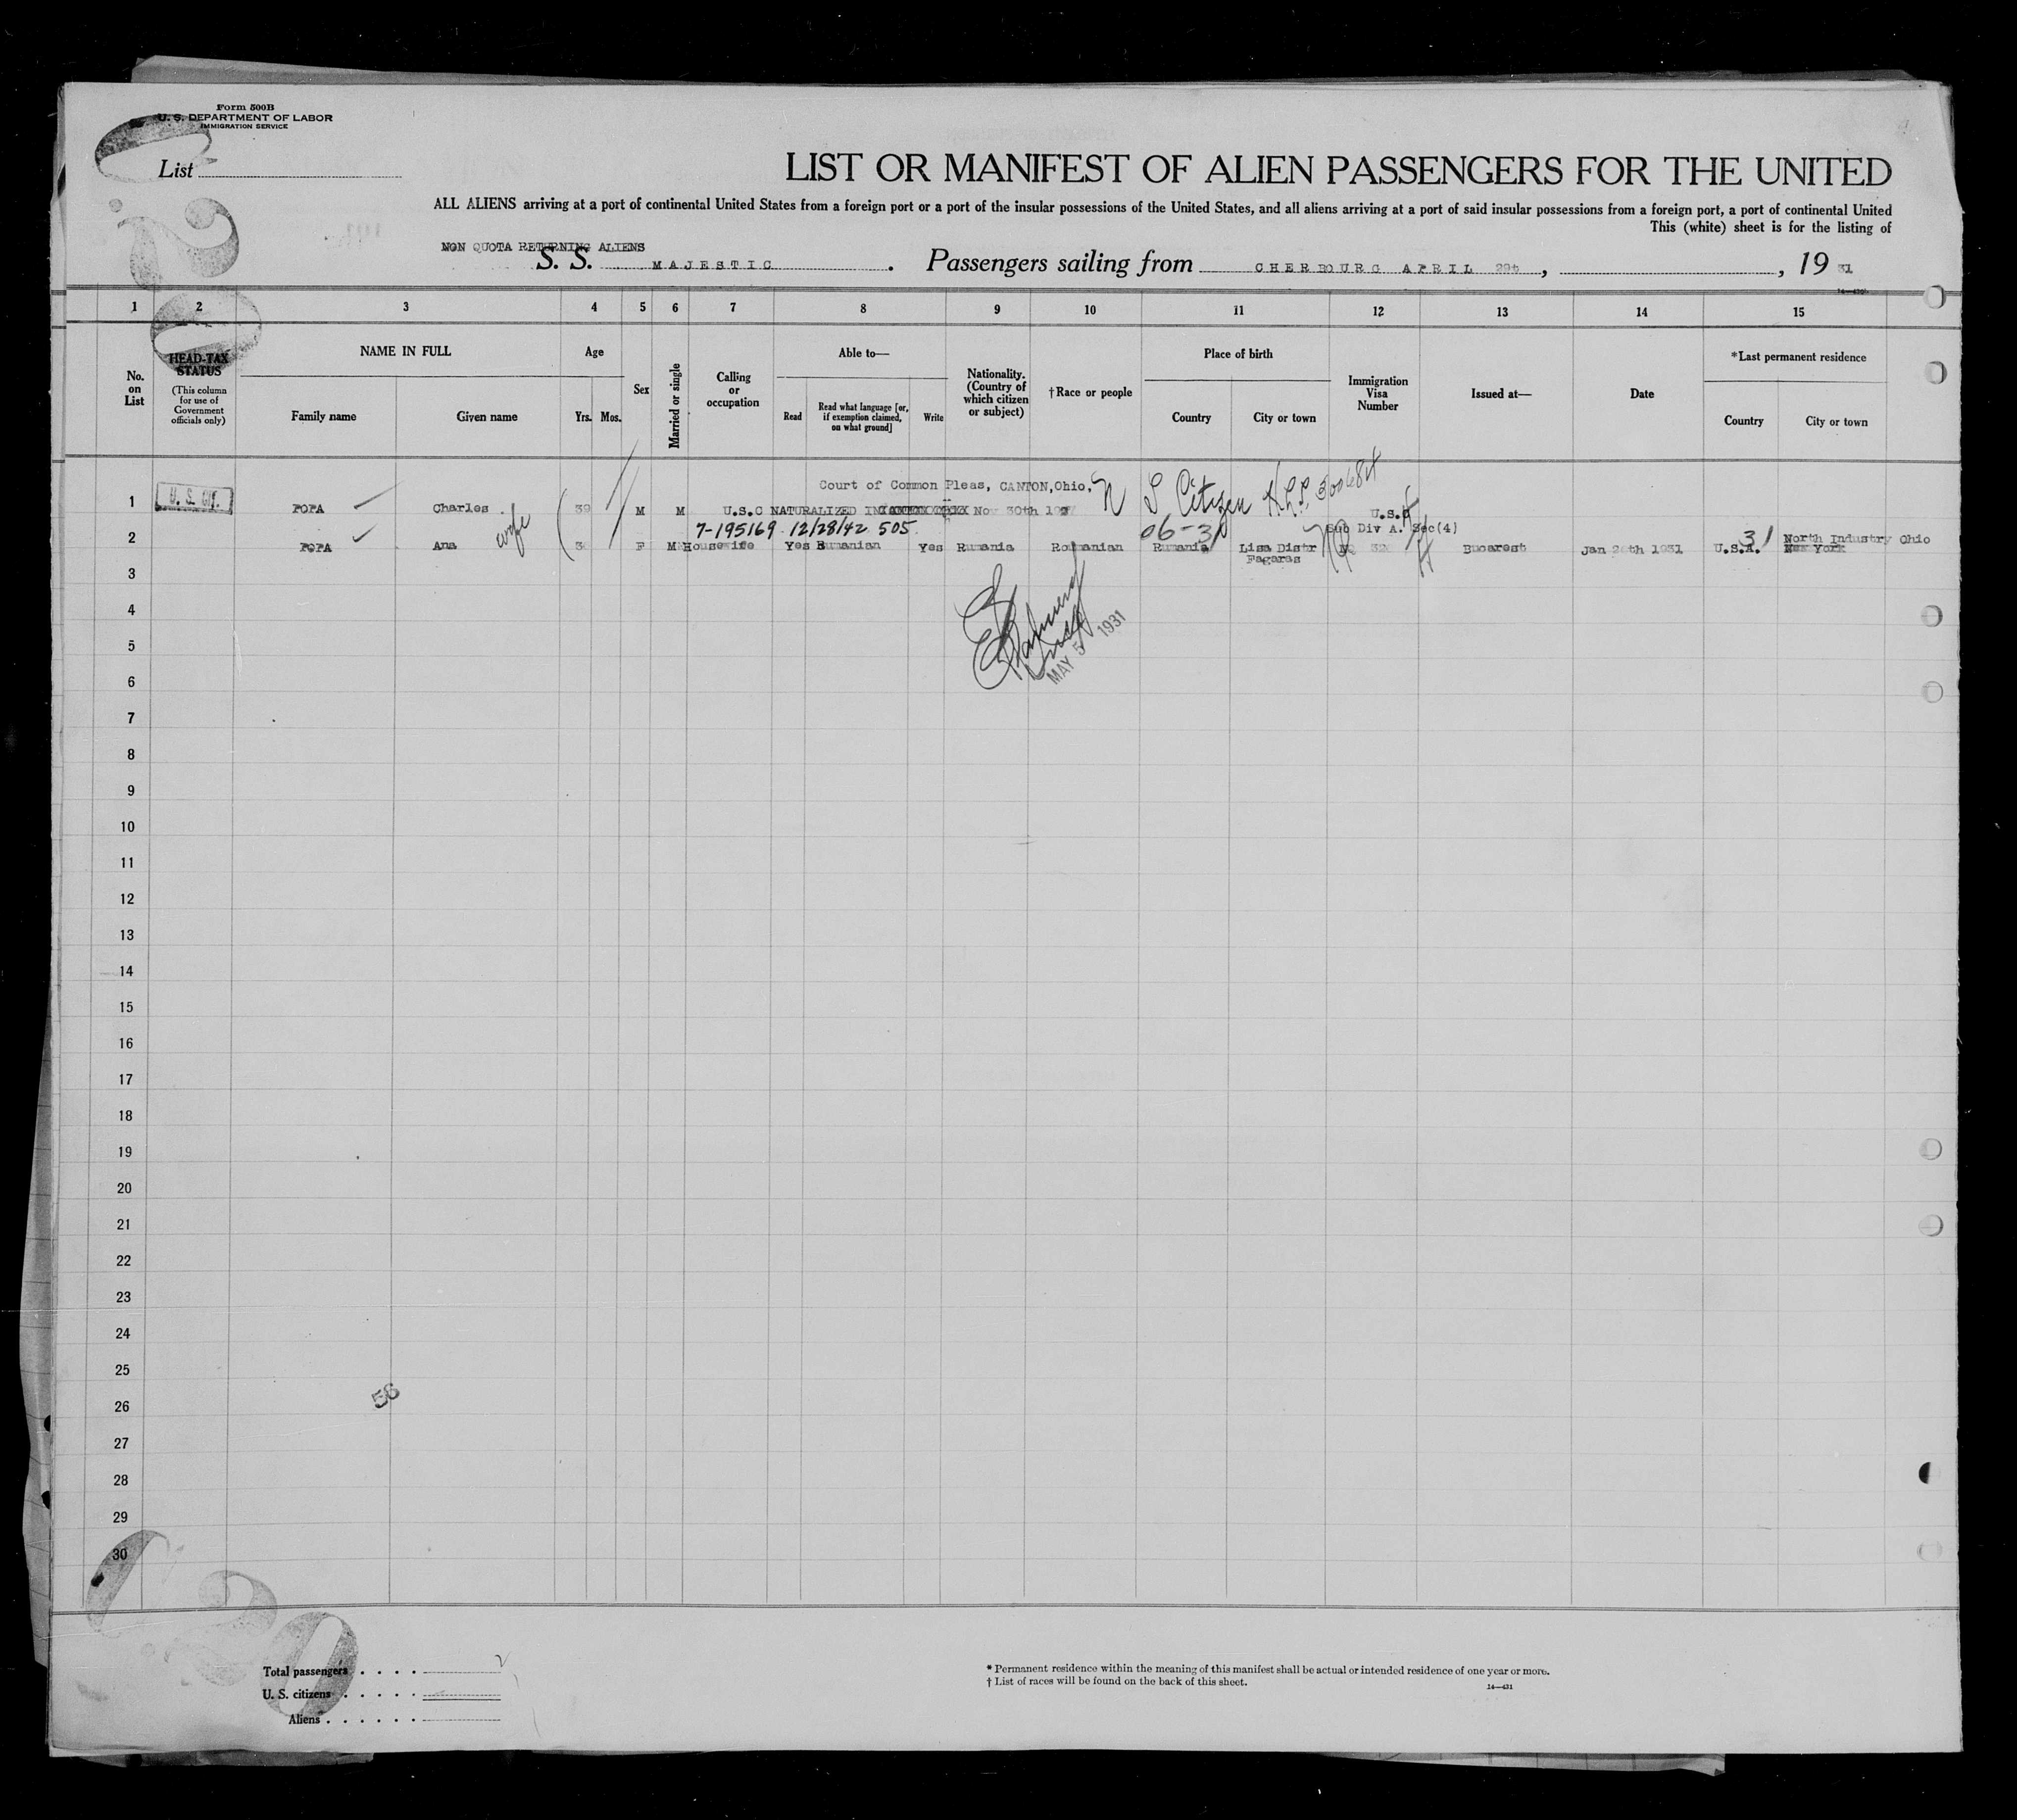 Form 500B
U. S. DEPARTMENT OF LABOR
IMMIGRATION SERVICE
List
LIST OR MANIFEST OF ALIEN PASSENGERS FOR THE UNITED
ALL ALIENS arriving at a port of continental United States from a foreign port or a port of the insular possessions of the United States, and all aliens arriving at a port of said insular possessions from a foreign port, a port of continental United
This (white) sheet is for the listing of
NON QUOTA RETURNING ALIENS
S. S. MAJESTIC. Passengers sailing from CHERBOURG APRIL 29t, , 19 31
1 2 3 4 5 6 7 8 9 10 11 12 13 14 15
No. on List
HEAD-TAX STATUS
(This column for use of Government officials only)
NAME IN FULL
Family name Given name
Age
Yrs. Mos.
Sex
Married or single
Calling or occupation
Able to—
Read
Read what language [or, if exemption claimed, on what ground]
Write
Nationality. (Country of which citizen or subject)
†Race or people
Place of birth
Country City or town
Immigration Visa Number
Issued at—
Date
*Last permanent residence
Country City or town
Court of Common Pleas, CANTON, Ohio, S Citizen
1 U. S. CIT. POPA Charles 39 M M U.S.C NATURALIZED IN Nov 30th U.S.
7-195169 12/28/42 505 06-31 Sub Div A. Sec(4)
2 POPA Ana wife 36 F M Housewife Yes Rumanian Yes Rumania Romanian Rumania Lisa Distr Fagaras NQ Bucarest Jan 26th 1931 U.S.A. 31 North Industry Ohio
New York
3
4
5
MAY 5 1931
6
7
8
9
10
11
12
13
14
15
16
17
18
19
20
21
22
23
24
25
56
26
27
28
29
30
Total passengers . . . . 2
U. S. citizens . . . . .
Aliens . . . . . .
* Permanent residence within the meaning of this manifest shall be actual or intended residence of one year or more.
† List of races will be found on the back of this sheet.
14—431